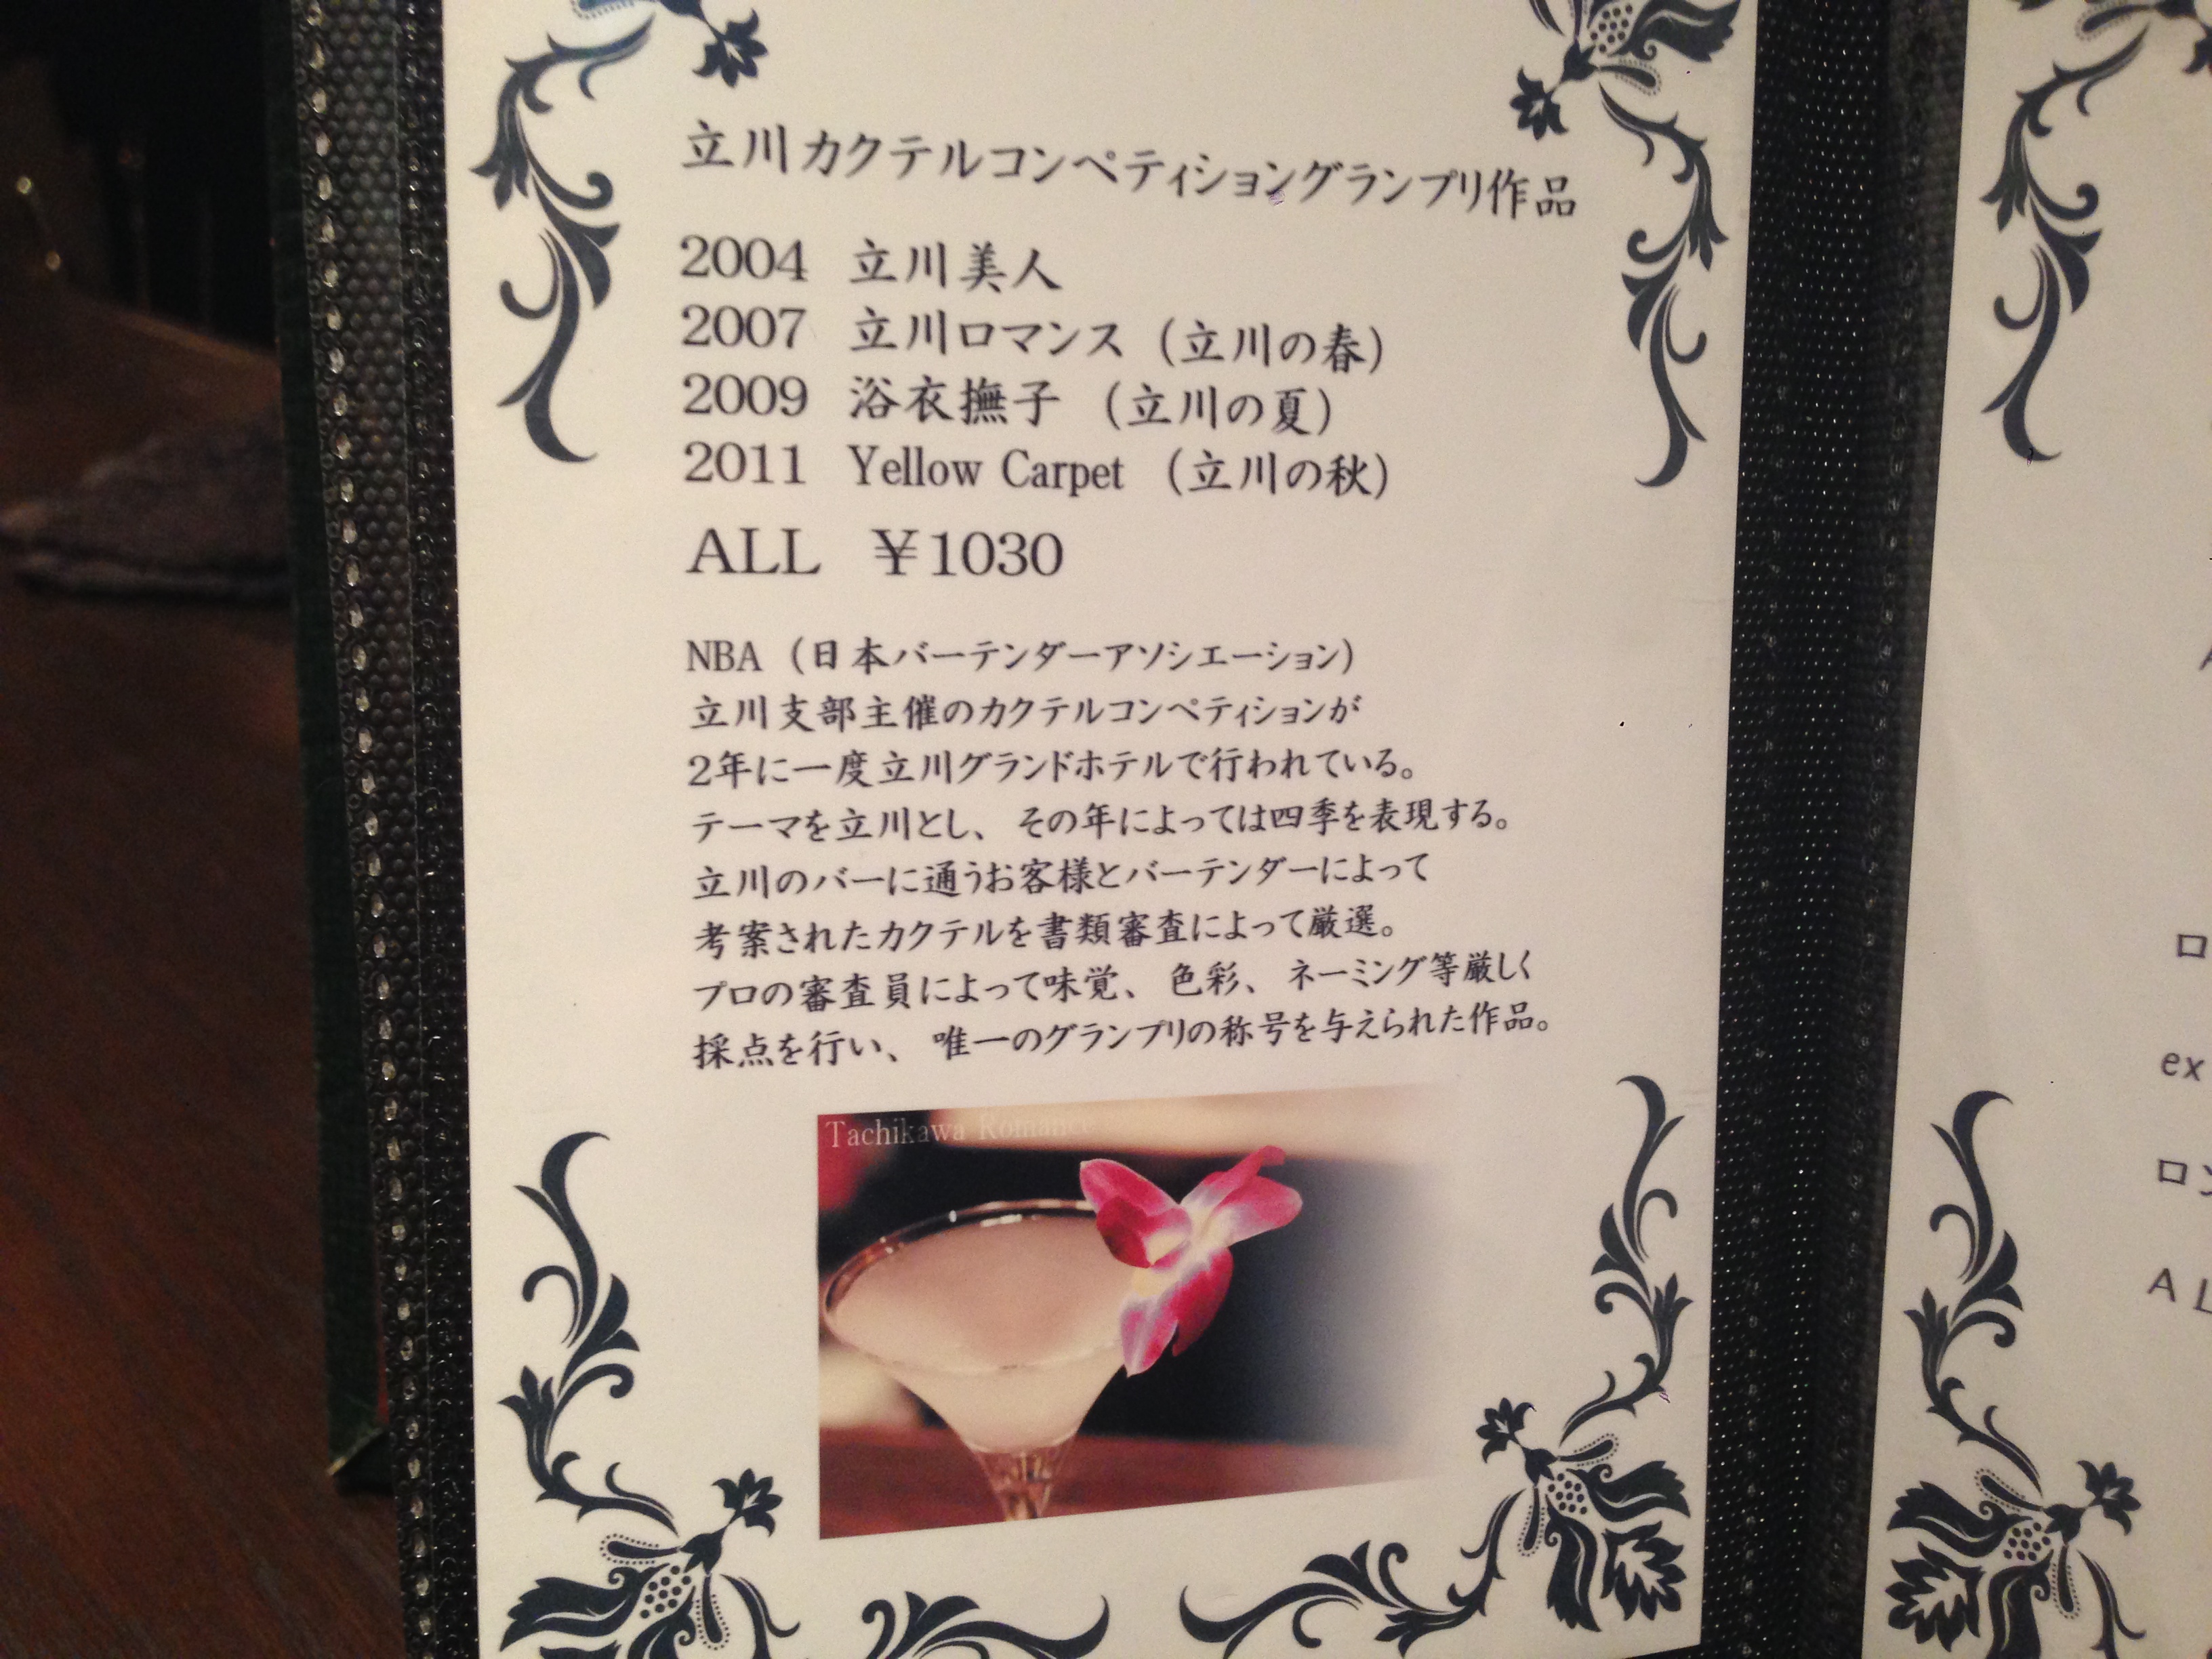 立川カクテルコンペティショングランプリ作品
2004 立川美人
2007 立川ロマンス（立川の春）
2009 浴衣撫子（立川の夏）
2011 Yellow Carpet（立川の秋）
ALL ￥1030
NBA（日本バーテンダーアソシエーション）
立川支部主催のカクテルコンペティションが
2年に一度立川グランドホテルで行われている。
テーマを立川とし、その年によっては四季を表現する。
立川のバーに通うお客様とバーテンダーによって
考案されたカクテルを書類審査によって厳選。
プロの審査員によって味覚、色彩、ネーミング等厳しく
採点を行い、唯一のグランプリの称号を与えられた作品。
Tachikawa Romance
ex